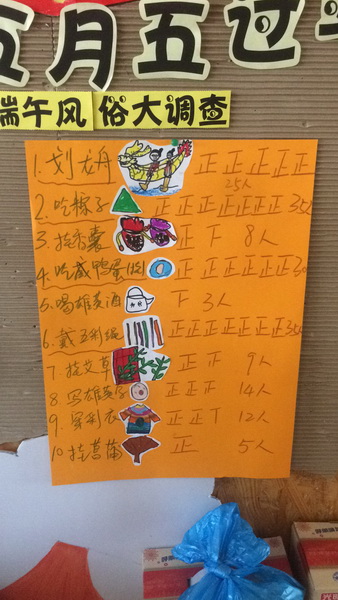 五月五过
端午风俗大调查
1. 划龙舟 正正正正正
25人
2. 吃粽子 正正正正正正正 35人
3. 挂香囊 正下 8人
4. 吃咸鸭蛋 正正正正正正 30
5. 喝雄黄酒 下 3人
6. 戴五彩绳 正正正正正正正 35人
7. 挂艾草 正正 9人
8 写雄黄字 正正正 14人
9. 穿彩衣 正正丅 12人
10. 挂菖蒲 正 5人